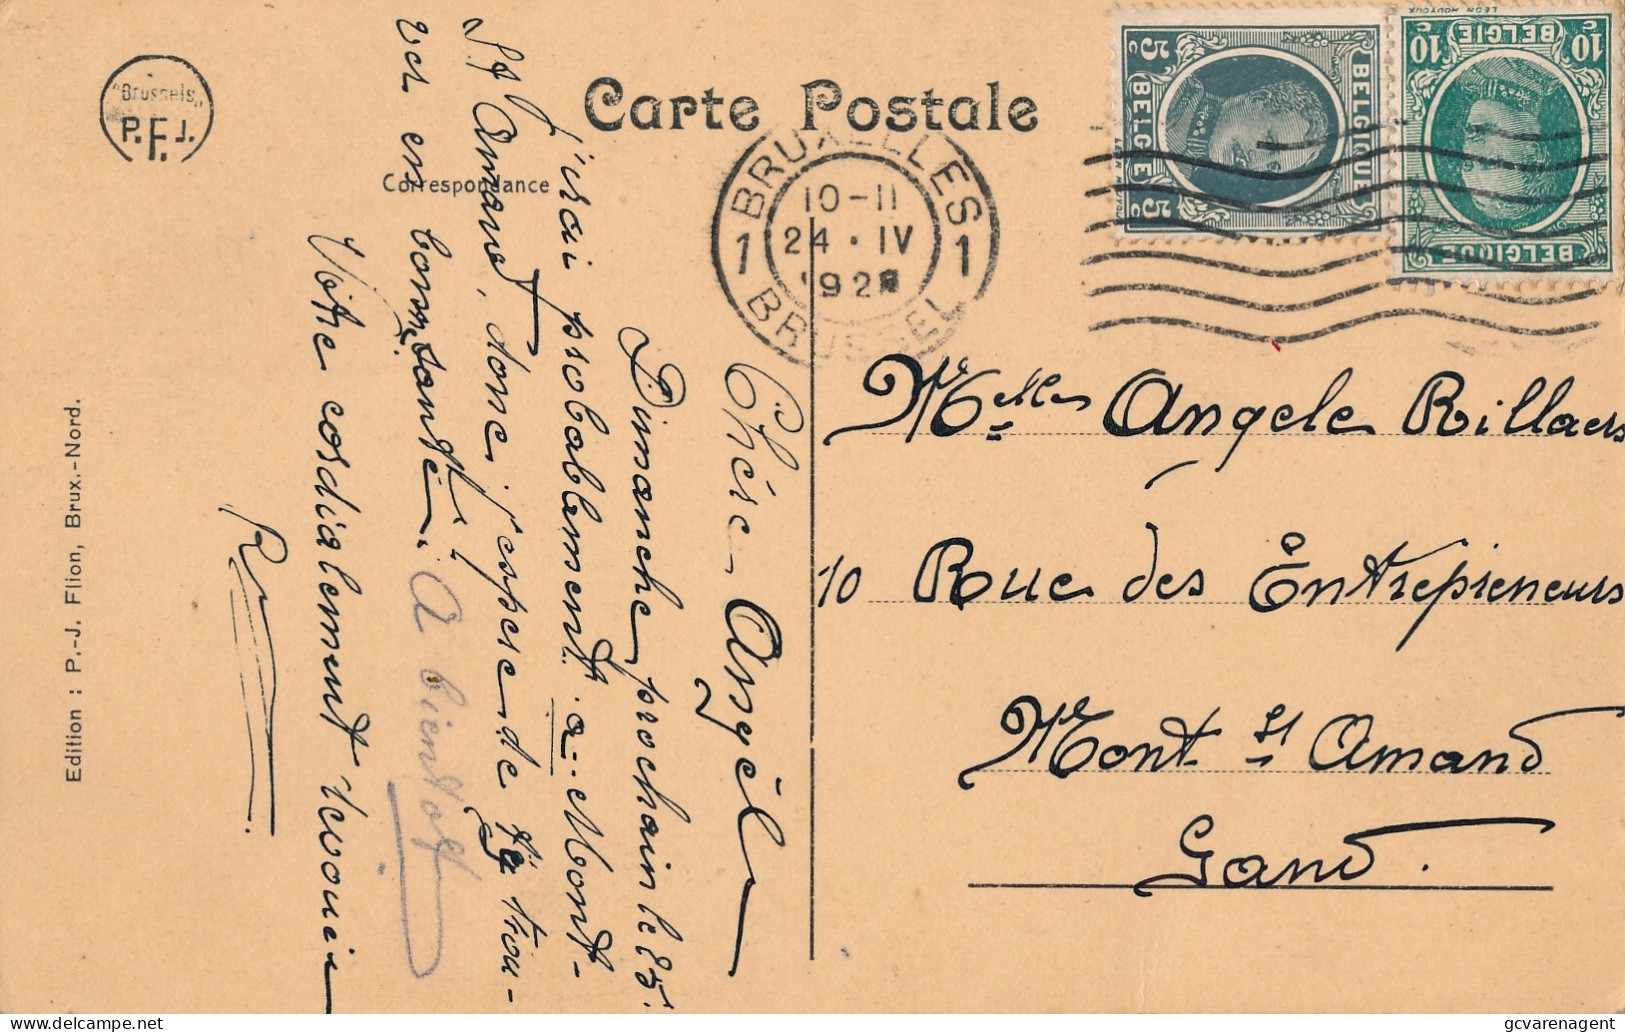 "Brussels"
P.F.J.
Carte Postale
Correspondance
BRUXELLES
10-11
24 · IV
192
1 1
BRUSSEL
5c BELGIE 5c
BELGIQUE
10c BELGIE 10c
BELGIQUE
LEON HOUYOUX
Chère Angèle
Dimanche prochain le 25
j'irai probablement à Mont-
St Amand, donc j'espère de te trou-
ver en bonne santé. A bientôt
Votre cordialement
R
Melle Angele Rillaers
10 Rue des Entrepreneurs
Mont St Amand
Gand.
Edition : P.-J. Flion, Brux.-Nord.
gcvarenagent